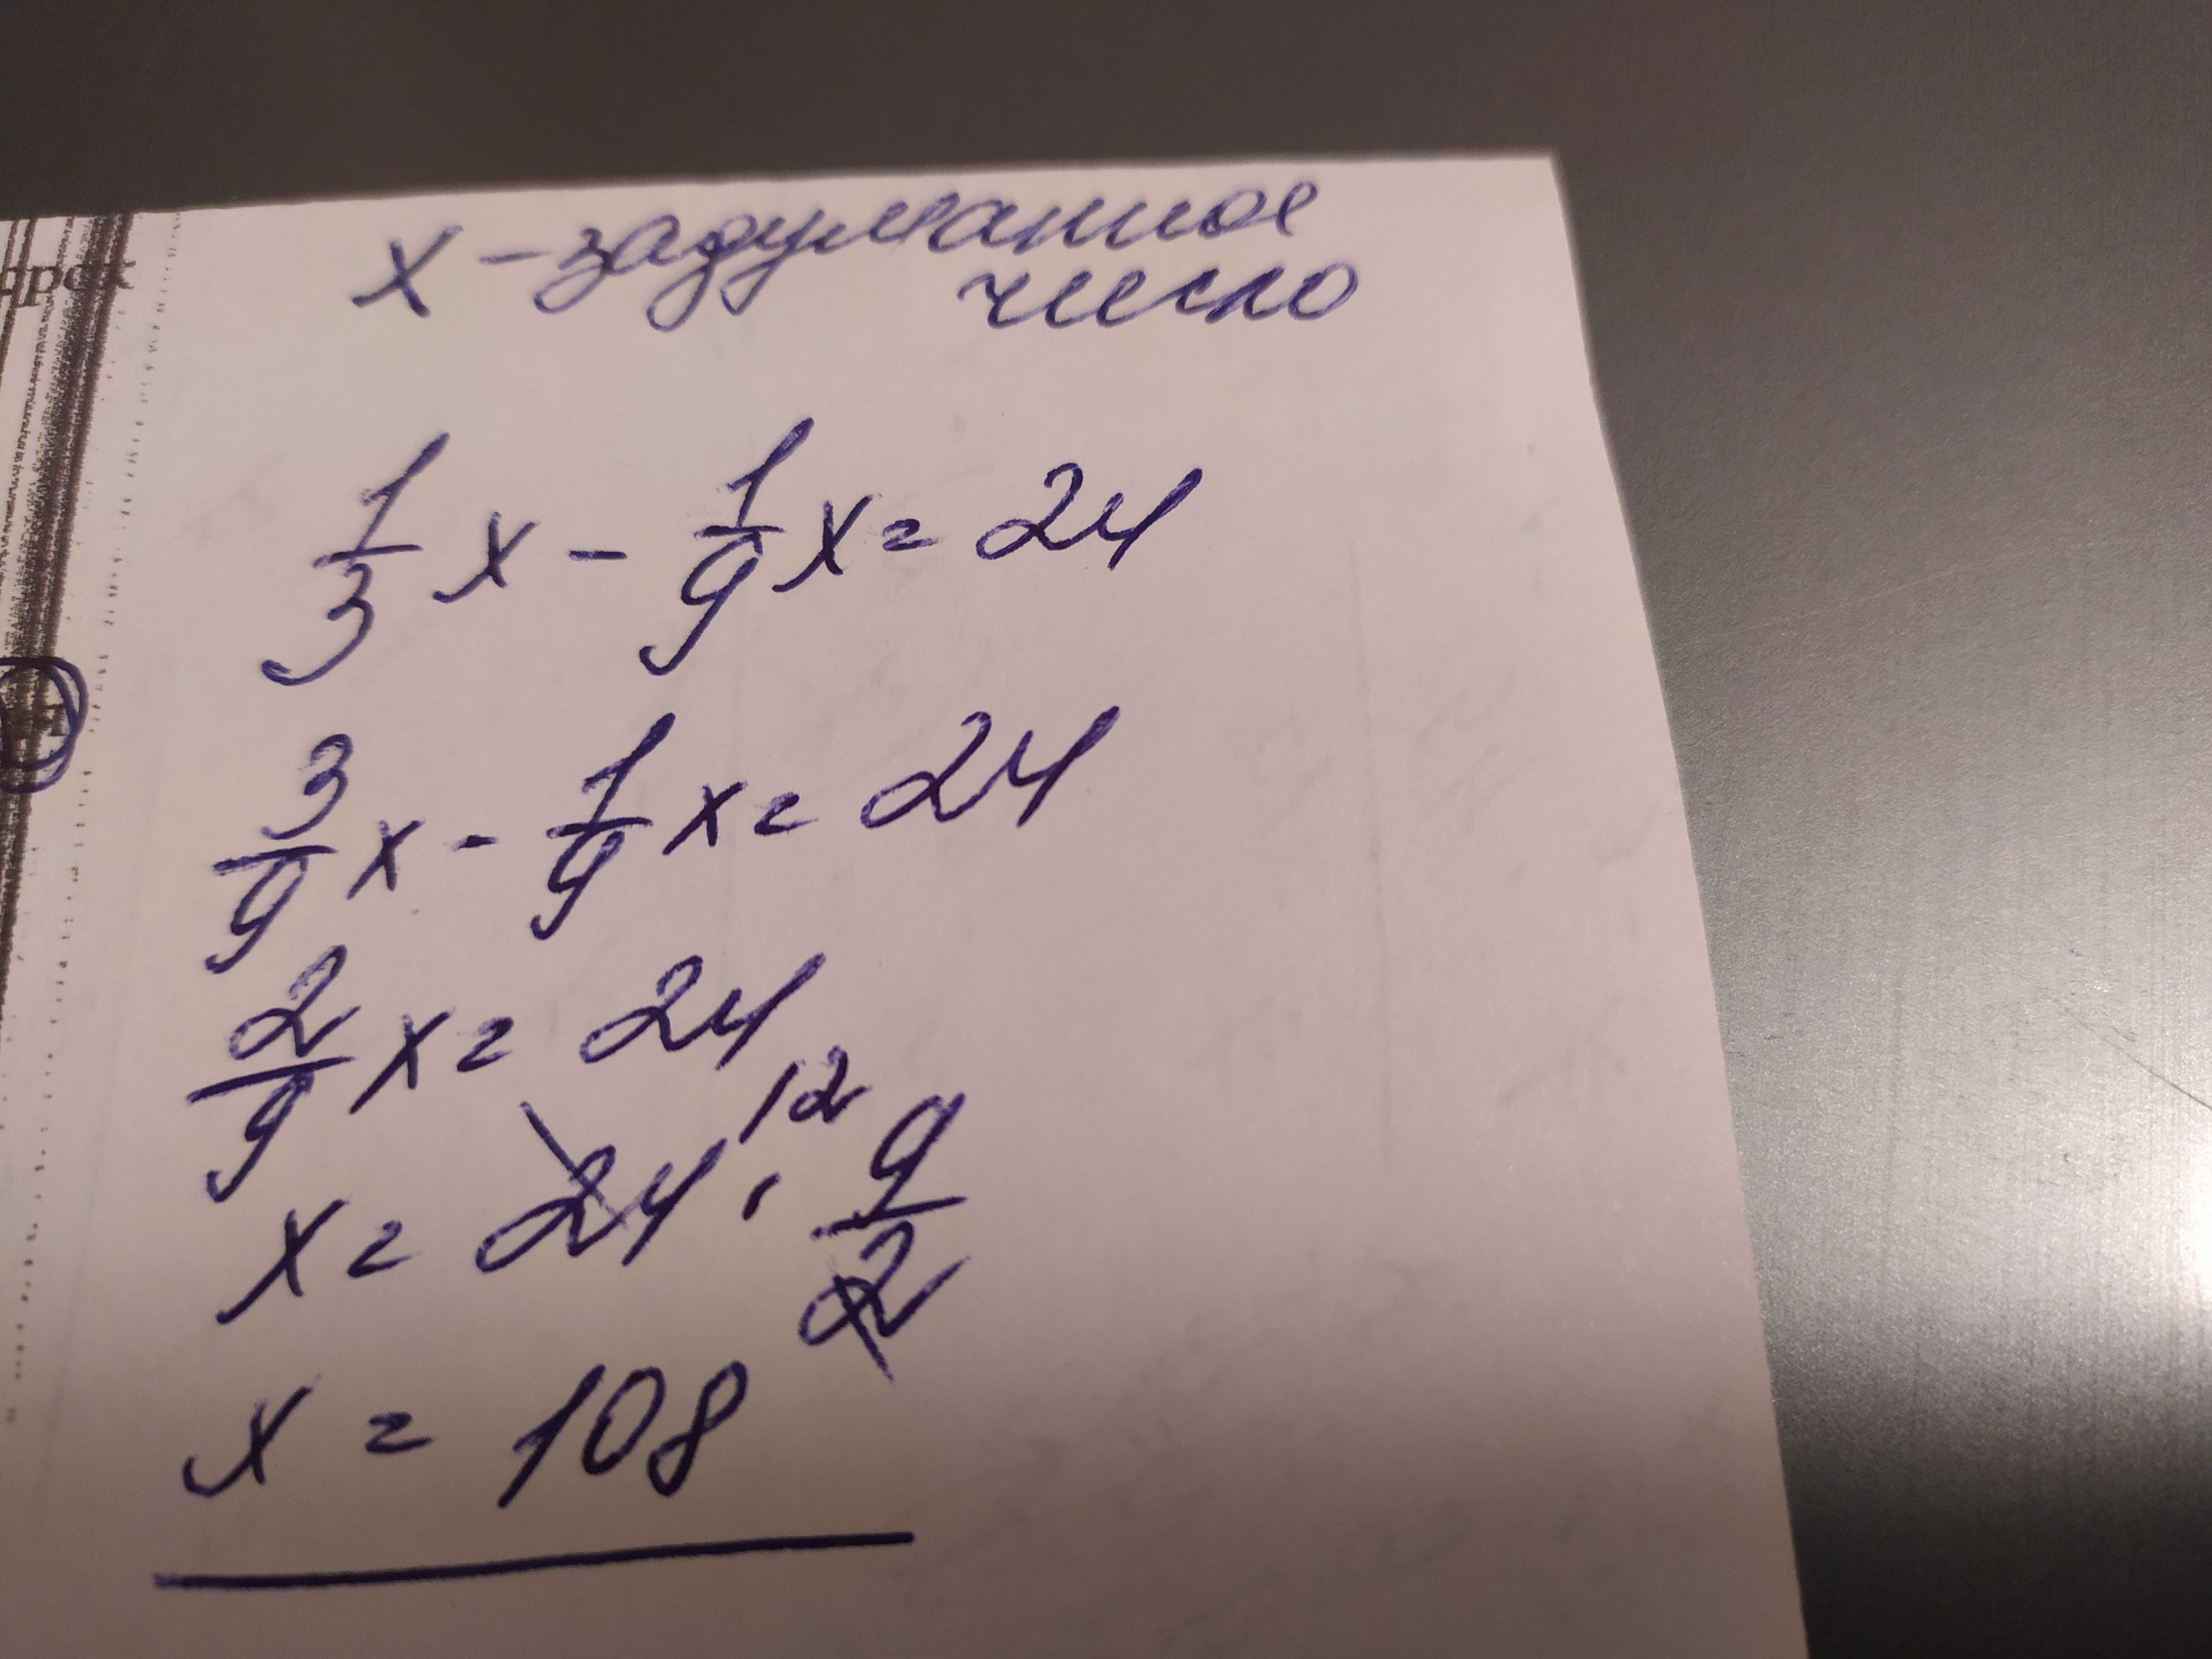 x - задуманное
число
1/3 x - 1/9 x = 24
3/9 x - 1/9 x = 24
2/9 x = 24
x = 24 12 · 9/2
x = 108